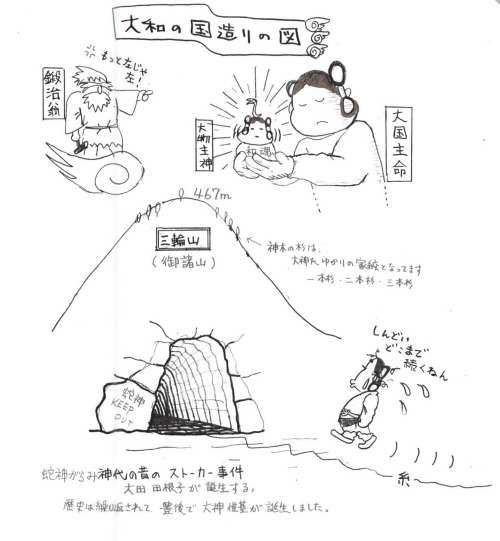 大和の国造りの図
もっと左じゃ
左!
鍛冶翁
大物主神
和魂
大国主命
467m
三輪山
(御諸山)
神木の杉は、
大神氏ゆかりの家紋となってます
一本杉・二本杉・三本杉
しんどい
どこまで
続くねん
蛇神
KEEP
OUT
糸
蛇神がらみ神代の昔の ストーカー事件
大田田根子が誕生する。
歴史は繰り返されて、豊後で大神惟基が誕生しました。